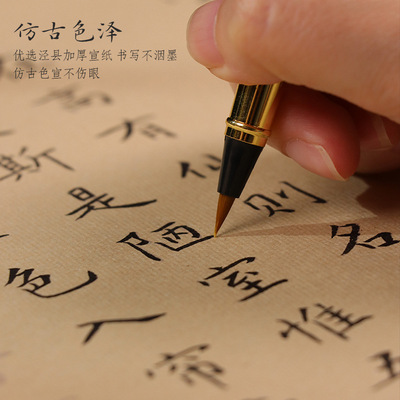 仿古色泽
优选泾县加厚宣纸 书写不洇墨
仿古色宣不伤眼
有仙则名
斯是陋室惟
色入帘